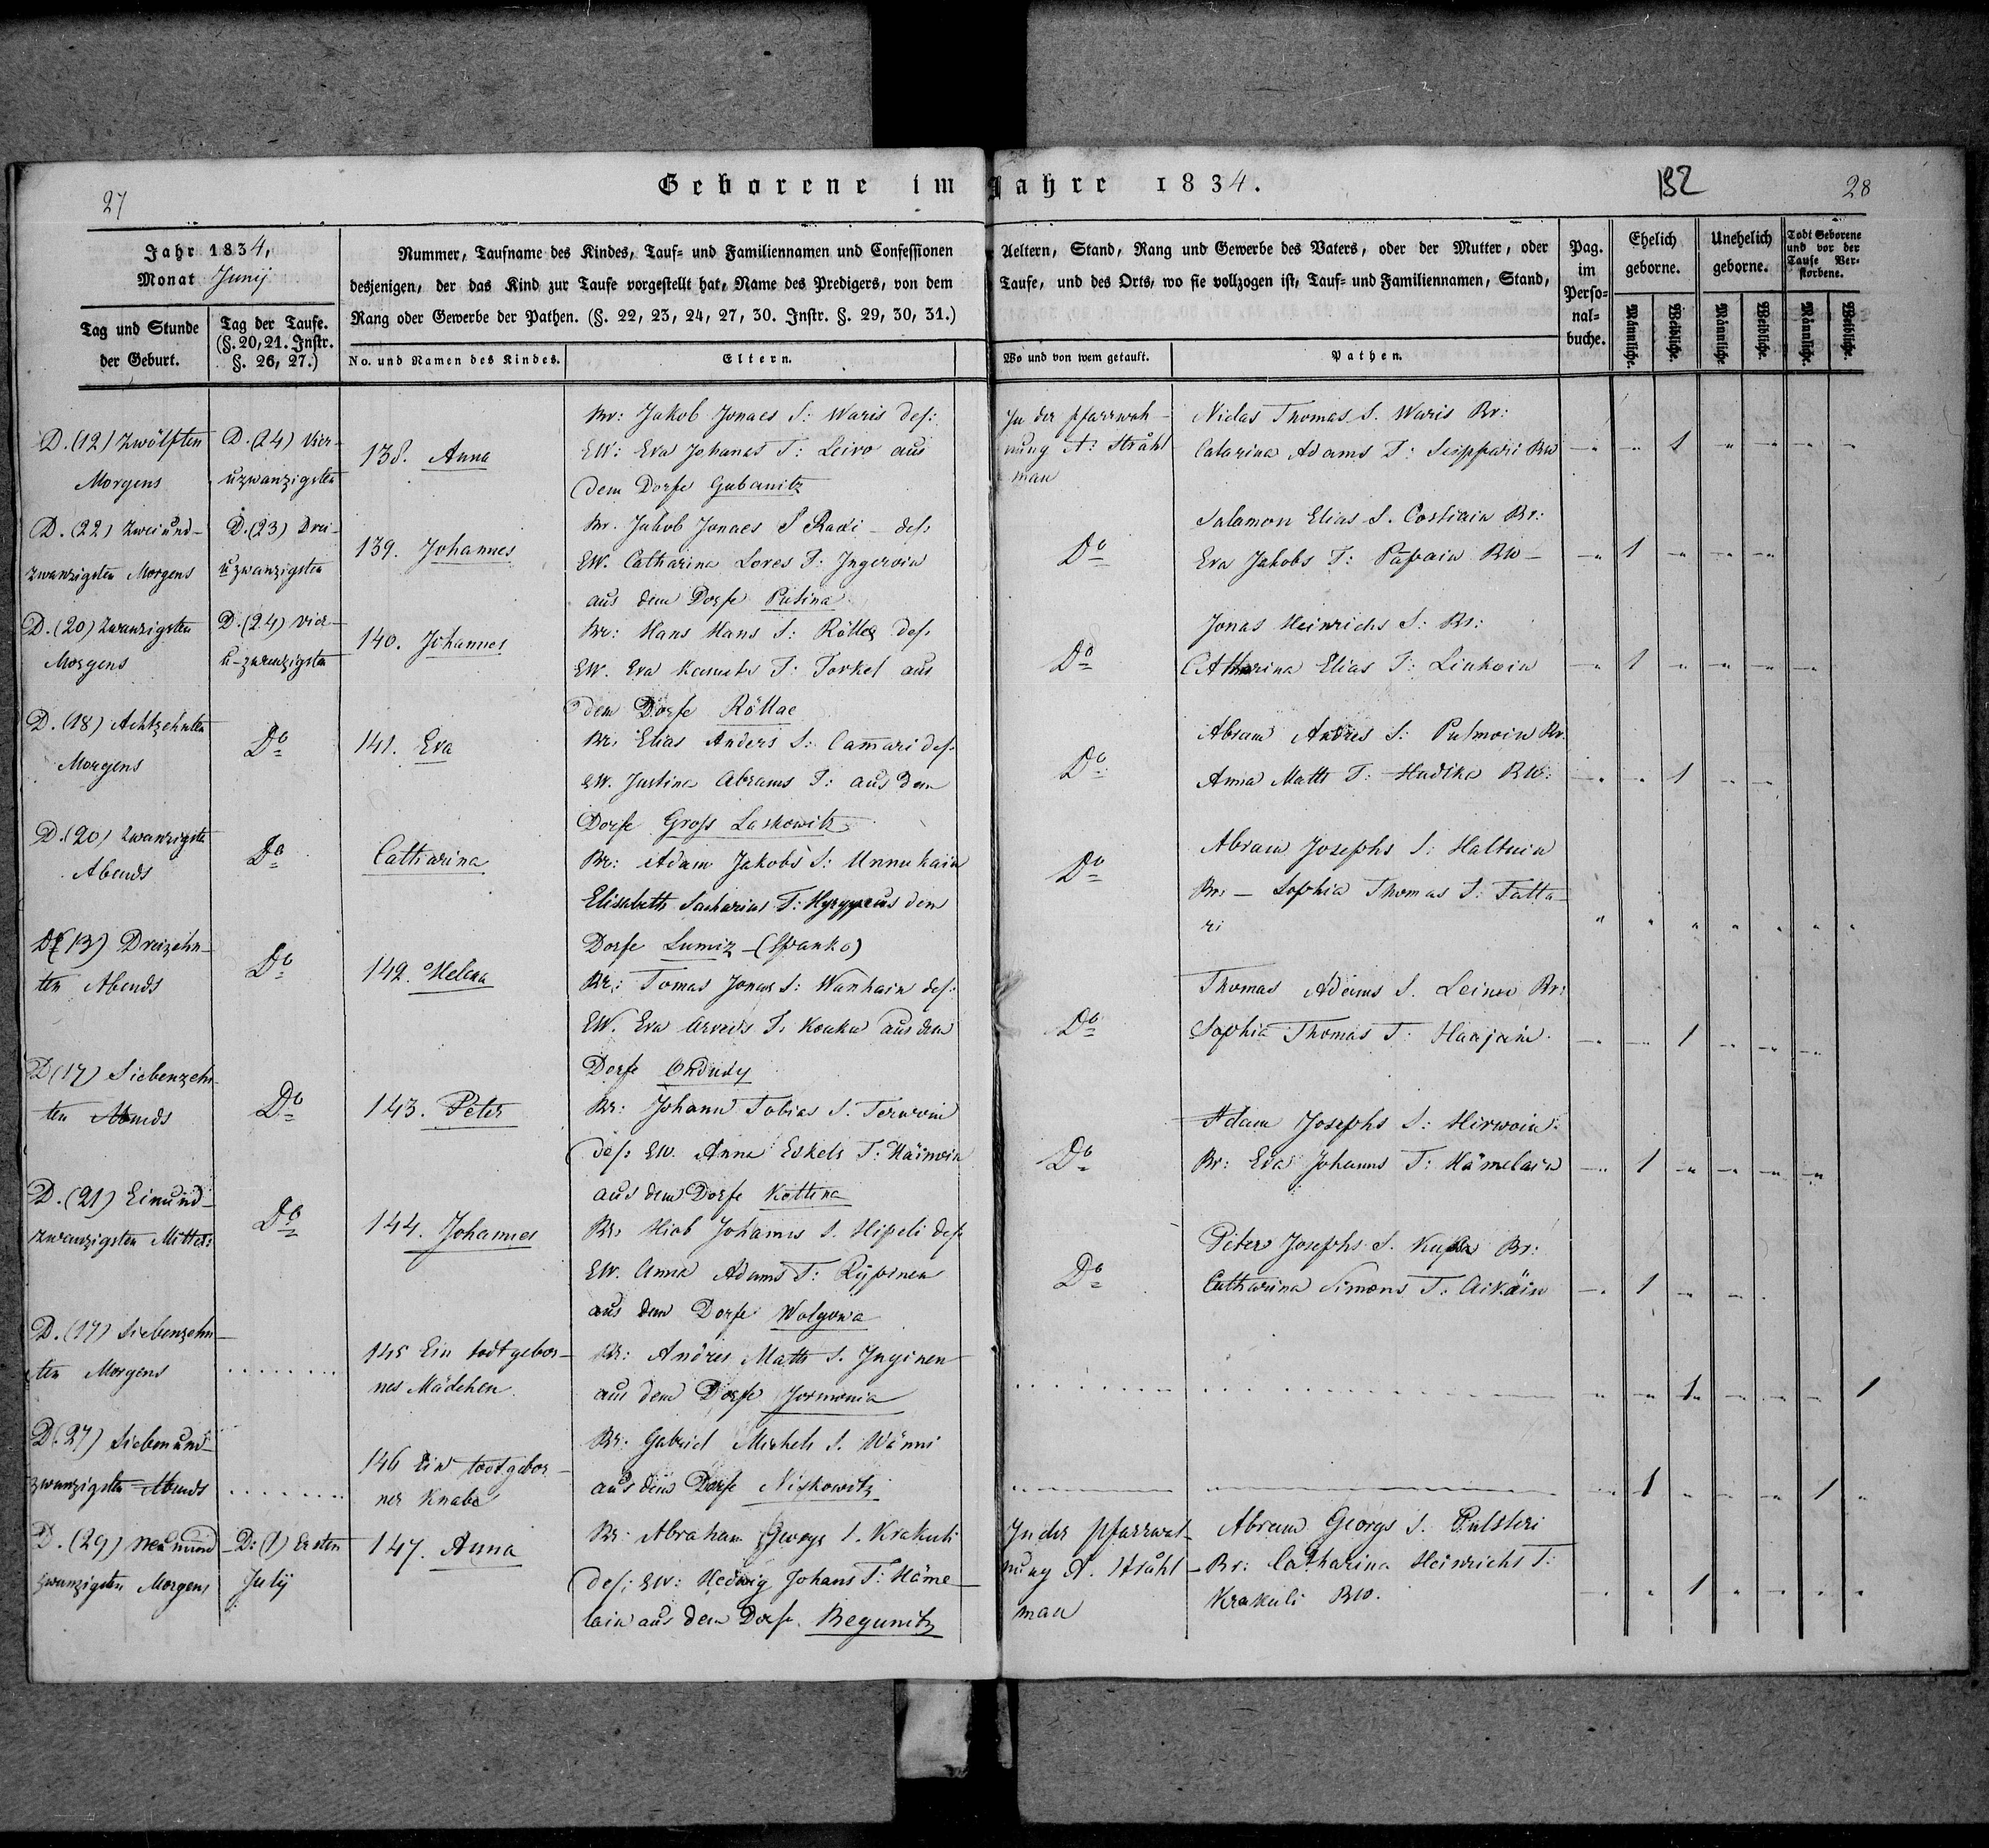 27
Geborene im Jahre 1834.
132
28
Jahr 1834,
Monat Junij
Tag und Stunde
der Geburt.
Tag der Taufe.
(§. 20, 21. Instr.
§. 26, 27.)
Nummer, Taufname des Kindes, Tauf- und Familiennamen und Confessionen
desjenigen, der das Kind zur Taufe vorgestellt hat, Name des Predigers, von dem
Rang oder Gewerbe der Pathen. (§. 22, 23, 24, 27, 30. Instr. §. 29, 30, 31.)
No. und Namen des Kindes.
Eltern.
Aeltern, Stand, Rang und Gewerbe des Vaters, oder der Mutter, oder
Taufe, und des Orts, wo sie vollzogen ist, Tauf- und Familiennamen, Stand,
Wo und von wem getauft.
Pathen.
Pag.
im
Perso-
nal-
buche.
Ehelich
geborne.
Unehelich
geborne.
Todt Geborene
und vor der
Taufe Ver-
storbene.
Männliche.
Weibliche.
Männliche.
Weibliche.
Männliche.
Weibliche.
D. (12) Zwölften
Morgens
D. (24) Vier-
uzwanzigsten
138. Anna
Br: Jakob Jonaes S: Waris des:
EW: Eva Johanes T: Leivo aus
dem Dorfe Gubanitz
In der Pfarrwoh-
nung A: Stråhl
man
Niclas Thomas S. Waris Br:
Catarina Adams T: Seippari Bw
1
D. (22) Zweiund-
zwanzigsten Morgens
D. (23) Drei-
uzwanzigsten
139. Johannes
Br. Jakob Jonaes S Raxi des:
EW. Catharina Lores T: Ingeroin
aus dem Dorfe Putina
Do
Salamon Elias S. Costiain Br:
Eva Jakobs T: Papain Bw
1
D. (20) Zwanzigsten
Morgens
D. (24) Vier-
u-zwanzigsten
140. Johannes
Br: Hans Hans S: Röttee des:
EW. Eva T: Torkel aus
dem Dorfe Röttae
Do
Jonas Heinrichs S: Br:
Catharina Elias T: Liukoin
1
D. (18) Achtzehnten
Morgens
Do
141. Eva
Br. Elias Anders S: Cam̄ari des.
EW. Justina Abrams T: aus dem
Dorfe Gross Laskowitz
Do
Abram Andres S: Pulmoin Br.
Anna Matts T: Hudika Bw:
1
D. (20) Zwanzigste
Abends
Do
Catharina
Br: Adam Jakobs S: Unnukain
Elisabeth Sacharias T: Hyryp aus dem
Dorfe Lumiz (Spanko)
Do
Abram Josephs S: Haltuin
Br: Sophia Thomas T: Tatta-
ri
D. (13) Dreizehn-
ten Abends
Do
142. Helena
Br: Tomas Jonas S: Wanhain des:
EW. Eva Arveds T. Kouku aus dem
Dorfe Ondudy
Do
Thomas Adams S. Leinoi Br:
Sophia Thomas T: Haajain
1
D (17) Siebenzehn-
ten Abends
Do
143. Peter
Br: Johann Tobias S. Terwoin
des: EW. Anna Eskels T: Häiwoin
aus dem Dorfe Kottina
Do
Adam Josephs S: Hirwoin
Br: Eva Johanns T: Hämelain
1
D. (21) Einund-
zwanzigsten Mittes:
Do
144. Johannes
Br. Hiob Johannes S. Hipeli des
EW. Anna Adams T: Ryponen
aus dem Dorfe Wolgowa
Do
Peter Josephs S. Br:
Catharina Simons T. Aikäin
1
D. (17) Siebenzehn-
ten Morgens
145 Ein todtgebor-
nes Mädchen
Br: Andres Matts S. Inginen
aus dem Dorfe Jormonia
1
1
D. 27) Siebenund-
zwanzigsten Abends
146 Ein todtgebor-
ner Knabe
Br: Gabriel Michels S. Wänni
aus dem Dorfe Niskowitz
1
1
D. (29) Neunund
zwanzigsten Morgens
D: (1) Ersten
July
147. Anna
Br: Abraham Georgs S. Krakuli
des: EW: Hedwig Johans T: Häme-
lain aus dem Dorfe. Begunitz
In der Pfarrwoh-
nung A. Stråhl-
man
Abram Georgs S. Pulsteri
Br: Catharina Heinrichs T:
Krakuli Bw.
1